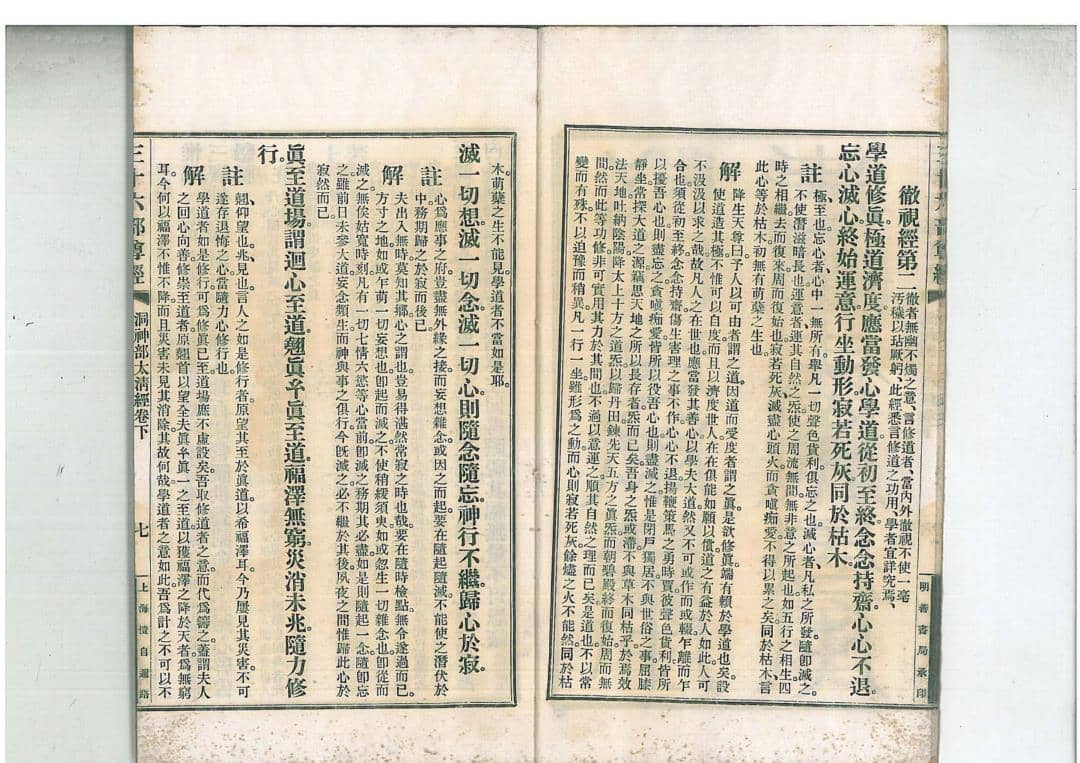 徹視經第二
徹者無幽不燭之意、言修道者、當內外徹視不使一毫
汚穢以玷厥躬、此經悉言修道之功用、學者宜詳究焉、
學道修眞。極道濟度應當發心學道從初至終。念念持齋。心心不退。
忘心滅心。終始運意。行坐動形。寂若死灰。同於枯木。
註
極、至也。忘心者、心中一無所有。舉凡一切聲色貨利俱忘之也。滅心者、凡私之所發隨卽滅之。
不使潛滋暗長也。運意者、運其自然之炁。使之周流無間。無非意之所起也。如五行之相生。四
時之相繼。去而復來。周而復始也。寂若死灰。滅盡心頭火。而貪嗔痴愛。不得以累之矣。同於枯木、言
此心等於枯木。初無有萌蘖之生也。
解
降生天尊曰。予人以可由者。謂之道。因道而受度者。謂之眞。是欲修眞。端有賴於學道也矣。設
使道造其極。不惟可以自度。而且以濟度世人。在在俱能如願以償。道之有益於人如此。人可
不汲汲以求之哉。故凡人之在世也。應當發其善心。以學夫大道。然又不可或作而或輟。乍離而乍
合也。須從初至終。念念持齋。傷生害理之事不作。心心不退。揚鞭策馬之勇時賈。彼聲色貨利。皆所
以擾吾心也。則盡忘之。貪嗔痴愛。皆所以役吾心也。則盡滅之。惟是閉戶獨居。不與世俗之事。屈膝
靜坐。常探大道之源。竊思天地之所以長存者。炁而已矣。吾身之炁。或滯不與草木同枯乎。於焉效
法天地。吐納陰陽。降太上十方之道炁。以歸丹田。鍊先天五方之眞炁。而朝碧殿。終而復始。周而無
間。然而此等功修。非可實用其力於其間也。不過以意運之。順其自然之理而已矣。是道也。不以常
變而有殊。不以迫豫而稍異。凡一行一坐。雖形爲之動。而心則寂若死灰。餘燼之火不能然。同於枯
明善書局承印
木。萌蘖之生不能見。學道者。不當如是耶。
滅一切想。滅一切念。滅一切心。則隨念隨忘。神行不繼。歸心於寂。
註
心爲應事之府。豈盡無外緣之接。而妄想雜念。或因之而起。要在隨起隨滅。不能使之潛伏於
中。務期歸之於寂而後已。
解
夫出入無時。莫知其鄉。心之謂也。豈易得湛然常寂之時也哉。要在隨時檢點。無令逢過而已。
方寸之地。如或乍萌一切妄想也。卽起而滅之。不使稍緩須臾。如或忽生一切雜念也。卽從而
滅之。無俟姑寬時刻。凡有一切七情六慾等心。當前卽滅之。務期其必盡。如是則隨起一念。隨卽忘
之。雖前日未參大道。妄念頻生。而神與事之俱行。今旣滅之。必不繼於其後。夙夜之間。惟歸此心於
寂然而已。
眞至道場。謂迴心至道。翹眞幸眞。至道福澤無窮。災消未兆。隨力修
行。
註
翹、仰望也。兆、見也。言人之如是修行者。原望其至於眞道。以希福澤耳。今乃屢見其災害。不可
遂存退悔之心。當隨力心修行也。
解
學道者如是修行。可爲修眞已。至道場應不虛設矣。吾取修道者之意。而代爲籌之。蓋謂夫人
之回心向善。修崇至道者。原翹首以望全夫眞幸眞一之至道。以獲福澤之降於天者。爲無窮
耳。今何以福澤不惟不降。而且災害未見其消除。其故何哉。學道者之意如此。吾爲計之。不可以不
三十六部尊經
洞神部太清經卷下
七